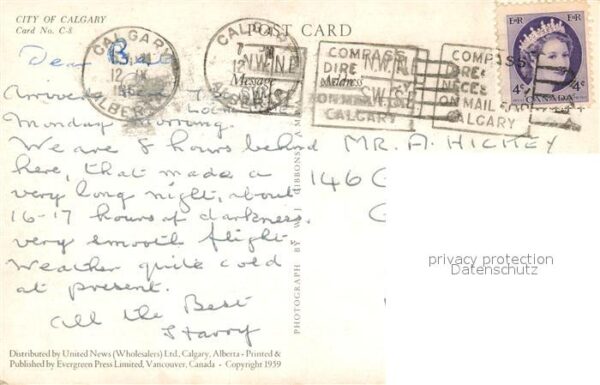 CITY OF CALGARY
Card No. C-8
POST CARD
CALGARY
ALBERTA
CALGARY
COMPASS
DIRE
ON MAIL
CALGARY
COMPASS
DIRE
NECES
ON MAIL FOR
CALGARY
E II R
E II R
4¢
CANADA
4¢
Message
Address
Dear
Arrived
Monday morning.
We are 8 hours behind
here, that made a
very long night, about
16-17 hours of darkness.
very smooth flight
Weather quite cold
at present.
All the Best
Harry
MR. A. HICKEY
146
PHOTOGRAPH BY W. J. GIBBONS
privacy protection
Datenschutz
Distributed by United News (Wholesalers) Ltd., Calgary, Alberta - Printed &
Published by Evergreen Press Limited, Vancouver, Canada - Copyright 1959